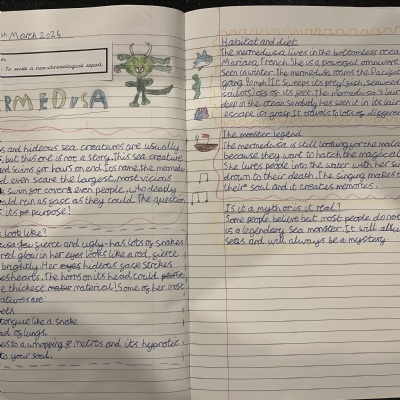 th March 2025
To write a non-chronological report
ERMEDUSA
s and hideous sea creatures are usually
, but this one is not a story. This sea creature
d swims for hours on end. Its name, the mermedusa
d even scare the largest, most vicious
swim for cover & even people, who deadly
ould run as fast as they could. The question
its purpose!
look like?
usa few fierce and ugly - has lots of snakes
red glow in her eyes looks like a red, fierce
brightly. Her eyes hideous gaze strikes
hearts. The horns on its head could pierce
e thickest material! Some of her most
eatures are:
eeth
tongue like a snake
ad of lungs
to a whopping 8 metres and its hypnotic
to your soul.
Habitat and diet
The mermedusa lives in the bottomless ocean
Mariana Trench. She is a powerful omnivore
seen in winter. The mermedusa roams the Pacific
gang mouth. It sweeps its prey (fish, seaweed
sailors) out of its seat. The mermedusa's lair
deep in the ocean. Nobody has seen it in its lair
escape its grasp. It travels to lots of different
The monster legend
The mermedusa is still looking for the
because they want to hatch the magical
She lures people into the water with her
drown to their death. The singing makes
their soul and it creates memories.
Is it a myth or is it real?
Some people believe but most people do not
is a legendary sea monster. It will
seas and will always be a mystery.